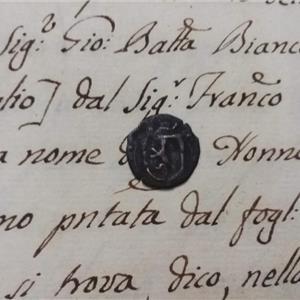 Sig.r Gio: Batta Bianc
lio] dal Sig.r Franco
a nome Nonn
no pntata dal fogl:
si trova, dico, nello